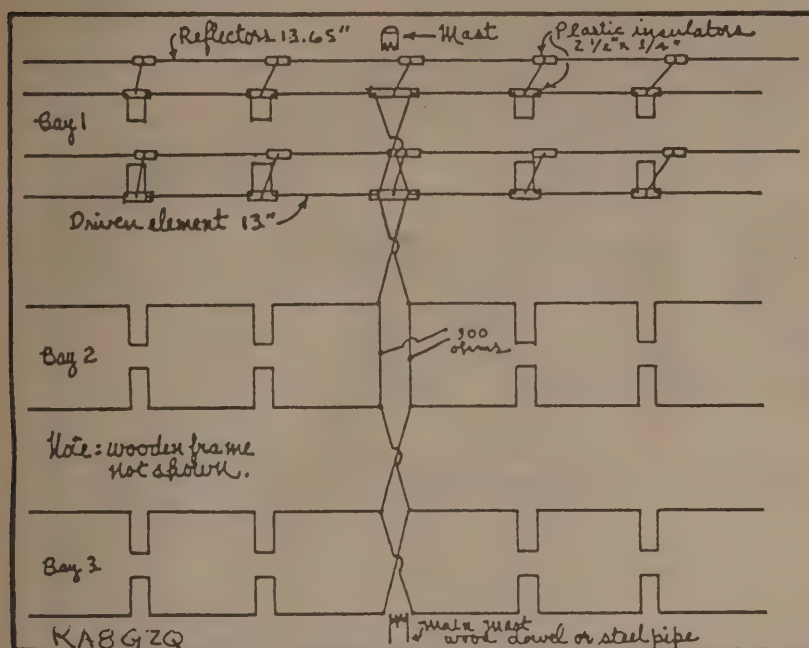 Reflectors 13.65"
Mast
Plastic insulators
2 1/2" x 3/4"
Bay 1
Driven element 13"
Bay 2
300
ohms
Note: wooden frame
not shown.
Bay 3
KA8GZQ
main mast
wood dowel or steel pipe